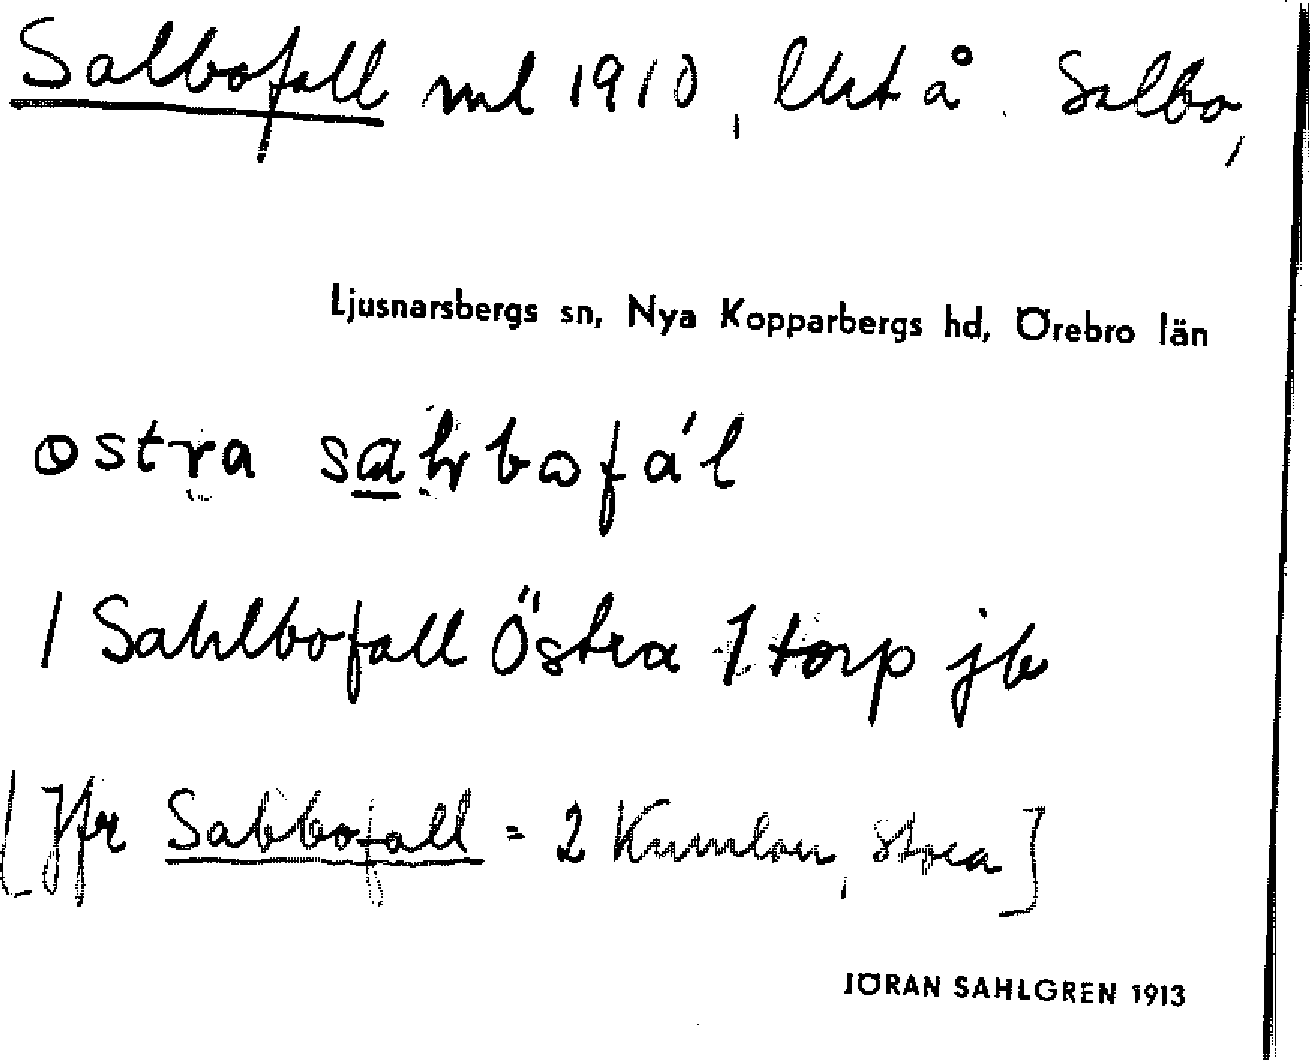 Salbofall ml 1910, Utå. Salbo,
Ljusnarsbergs sn, Nya Kopparbergs hd, Örebro län
ostra sahrbofál
1 Sahlbofall Östra 1 torp jb
[Jfr Sabbofall = 2 Kumlan, Stora]
JÖRAN SAHLGREN 1913